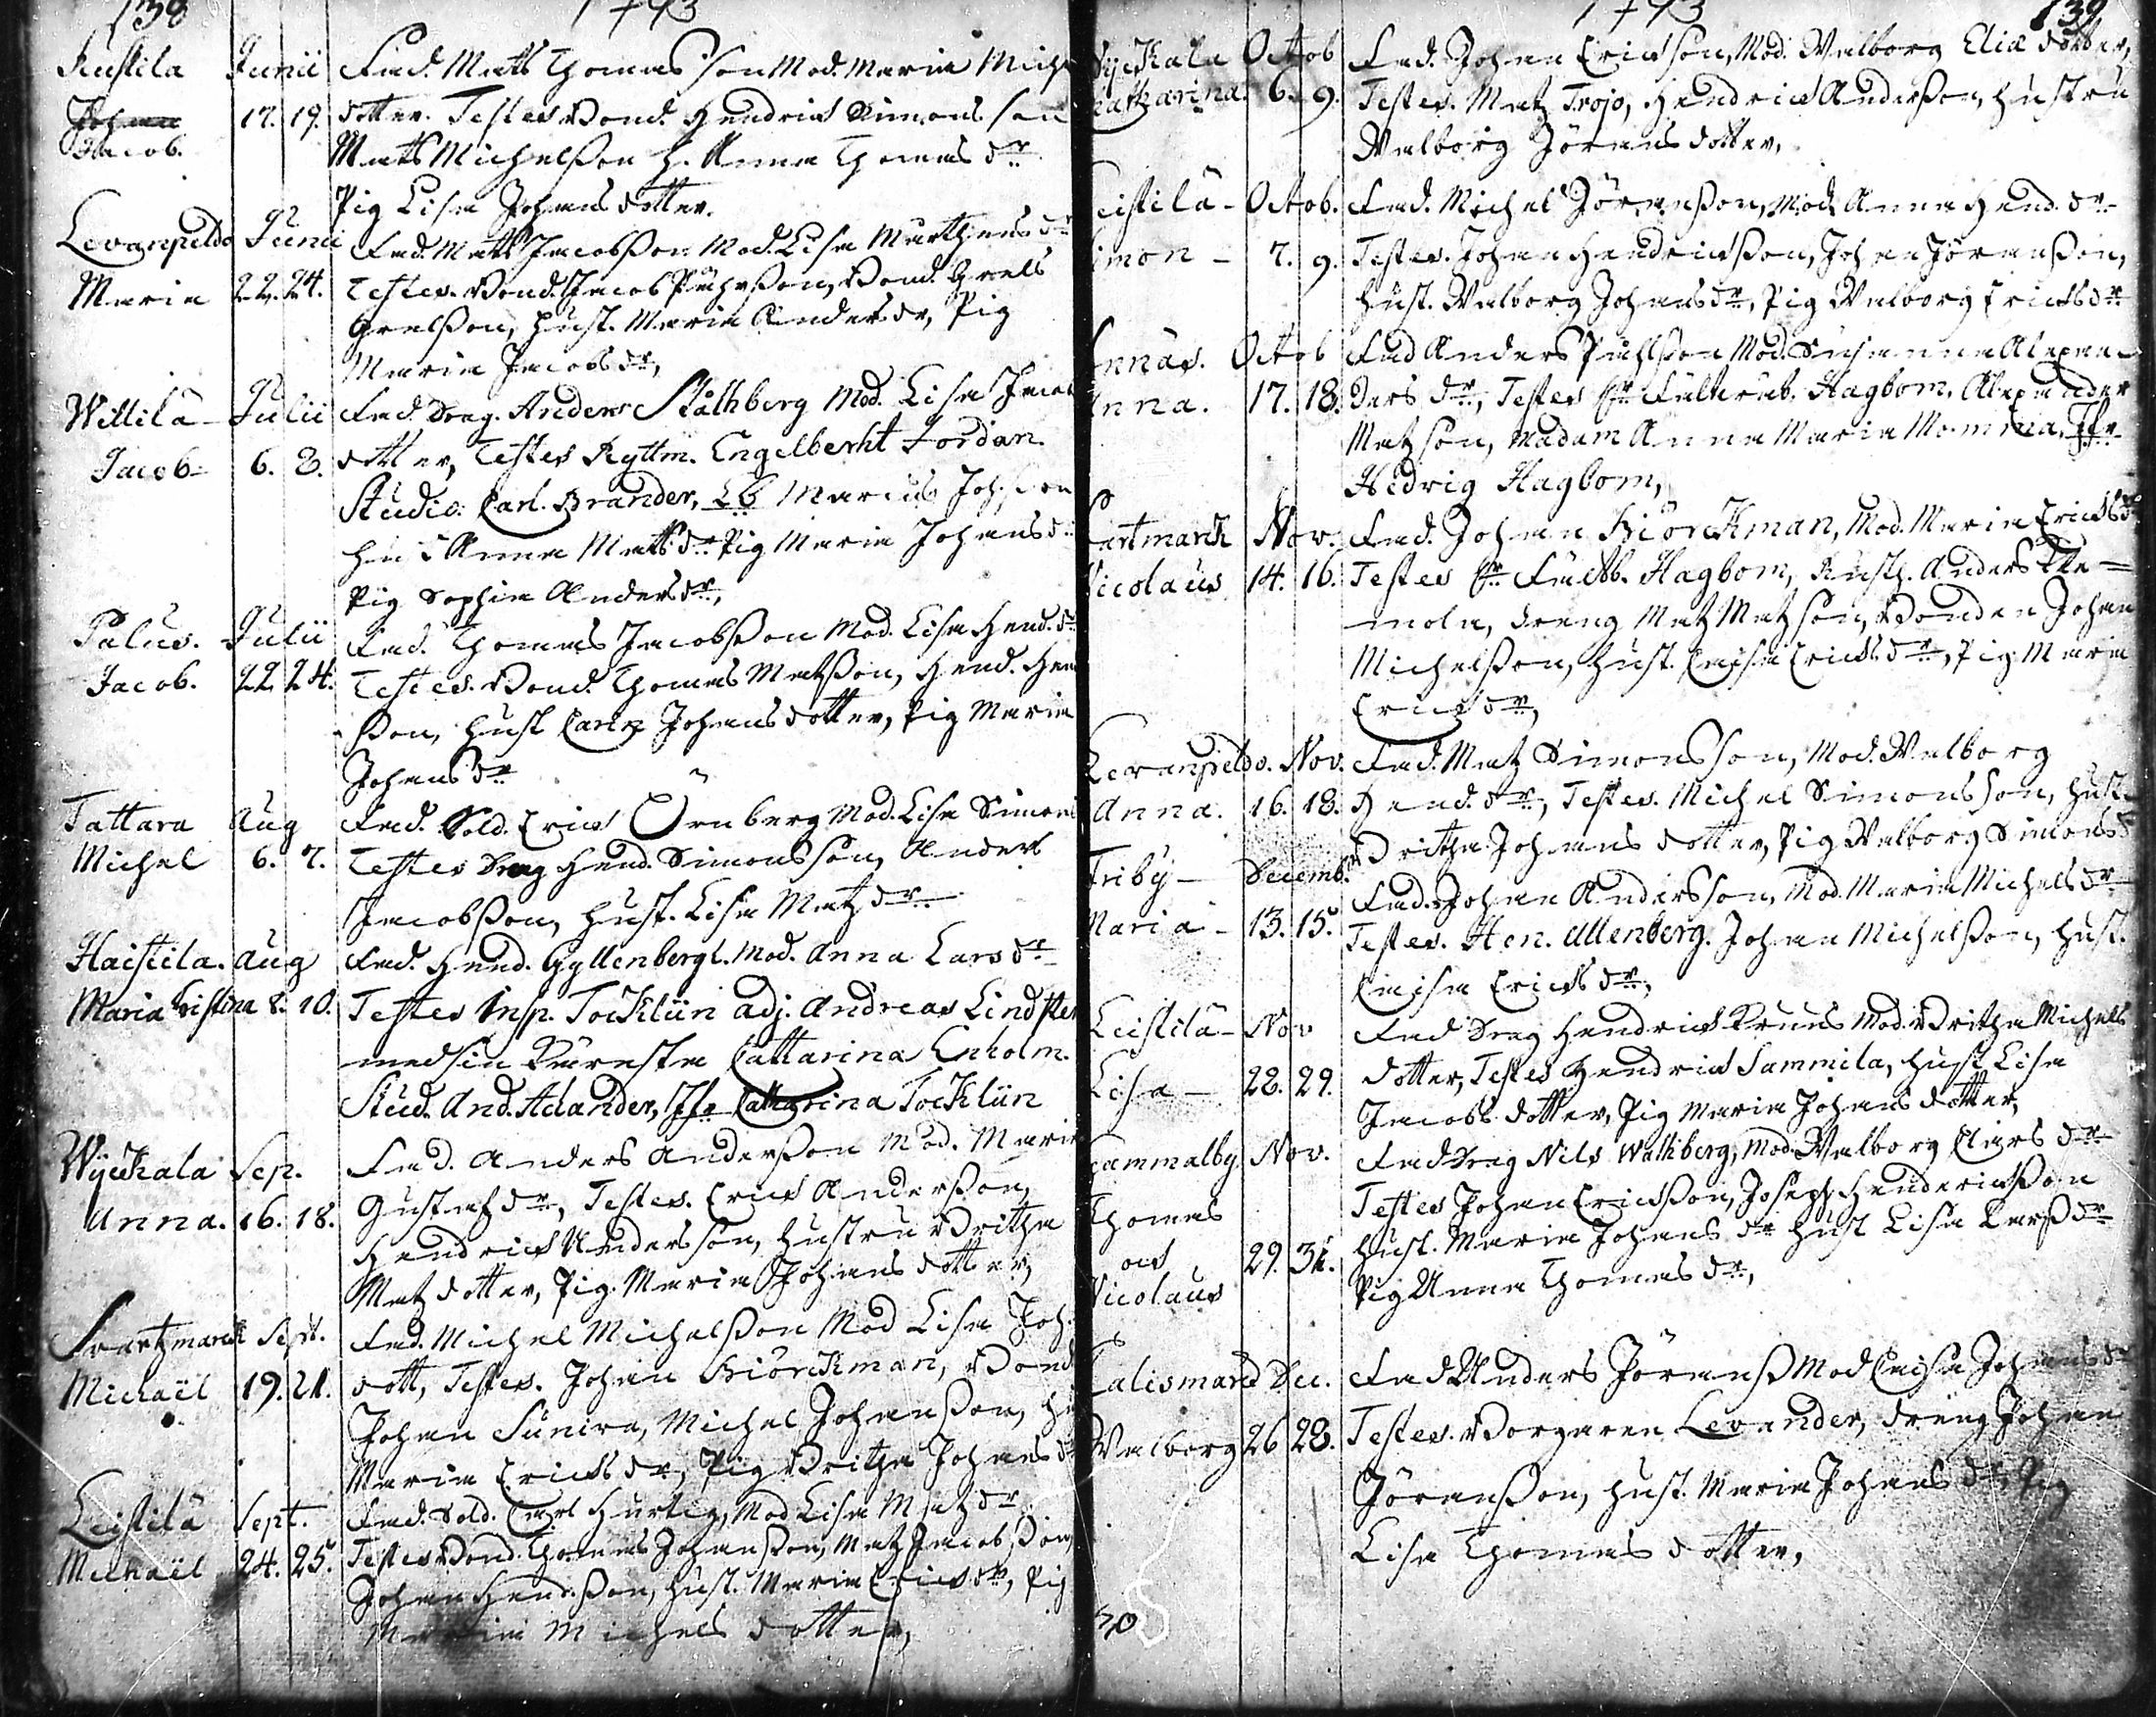 138 1743
Kustila Junii Fad. Matts Thomasson Mod. Maria Mich
Johan 17. 19. dotter. Testes Bond. Hendrick Simonsson
Jacob. Matts Michelsson h. Anna Thomas dr
Pig Lisa Johansdotter.
Levanpeldo Junii Fad. Matts Jacobsson Mod. Lisa Marthens dr
Maria 22. 24. Testes. Bond. Jacob Påhlsson, Bond. Grels
Grelsson, hust. Maria Anders dr, Pig
Maria Jacobs dr,
Willilä Julii Fad. Drag. Anders Stålhberg Mod. Lisa Jacob
Jacob 6. 8. dotter, Testes Ryttm. Engelberht Jordan
Studio: Carl. Brander, Marcus Johsson
Anna Matts dr Pig Maria Johans dr
Pig Sophia Anders dr,
Palus. Julii Fad. Thomas Jacobsson Mod. Lisa Hend. dr
Jacob. 22 24. Testes. Bond. Thomas Matsson, Hend. Hen
sson, hust Carin Johansdotter, Pig Maria
Johans dr
Tattara Aug Fad. Sold. Erick Örnberg Mod. Lisa Simons
Michel 6. 7. Testes Drag Hend. Simonsson, Anders
Jacobsson, hust. Lisa Matz dr
Haistila. Aug Fad. Hend. Gyllenbergl. Mod. Anna Lars dr
Maria Kristina 8. 10. Testes Insp. Tocklin adj. Andreas Lindste
med sin Käresta Cattarina Enholm.
Stud. And. Aelander, Jfr Catharina Tocklin
Wijckala Sep. Fad. Anders Andersson Mod. Maria
Anna. 16. 18. Gustaf dr, Testes. Erick Andersson,
Hendrick Andersson, Hustru Britha
Matz dotter, Pig. Maria Johans dotter,
Svartzmarck Sept. Fad. Michel Michelsson Mod Lisa Joh.
Michaël 19. 21. dott, Testes. Johan Biörckman, Bond
Johan Sunira, Michel Johansson, hu
Maria Ericks dr, Pig Britha Johans dr
Leistilä Sept. Fad. Sold. Carl Hurtig, Mod Lisa Matz dr
Michaël 24. 25. Testes Bond. Thomas Johansson, Matz Jacobsson,
Johan Hendsson, hust. Maria Ericks dr, Pig
Maria Michels dotter,
1743 139
Wijckala Octob Fad. Johan Ericksson, Mod. Valborg Eliæ dotter,
Catharina. 6. 9. Testes. Matz Trojo, Hendrick Andersson, hustru
Valborg Jörans dotter,
Leistilä Octob. Fad. Michel Jöransson, Mod. Anna Hend. dr
Simon 7. 9. Testes. Johan Hendricksson, Johan Jöransson,
hust. Valborg Johans dr, Pig Valborg Ericks dr
Annäs. Octob Fad Anders Påhlsson Mod. Susanna Alexan-
Anna. 17. 18. ders dr, Testes Hr Fältkamb. Hagbom, Alexander
Matzson, Madam Anna Maria Momma, Jfr
Hedvig Hagbom,
Svartmarck Nov. Fad. Johan Biörckman, Mod. Maria Ericks dr
Nicolaus 14. 16. Testes Hr Fältkb. Hagbom, Rusth. Anders Kle-
mola, dreng Matz Matzson, Bonden Johan
Michelsson, hust. Caisa Ericks dr, Pig. Maria
Ericks dr,
Levanpeldo. Nov. Fad. Matz Simonsson, Mod. Valborg
Anna. 16. 18. Hend. dr, Testes. Michel Simonsson, hust.
Britha Johans dotter, Pig Valborg Simons d
Friby Decemb. Fad. Johan Andersson, Mod. Maria Michels dr
Maria 13. 15. Testes. Hen. Ullenberg. Johan Michelsson, hust.
Caisa Ericks dr,
Leistilä Nov Fad Drag Hendrick Kruus Mod. Britha Michels
Lisa 28. 29. dotter, Testes Hendrick Sammila, hust Lisa
Jacobs dotter, Pig Maria Johans dotter,
Gammalby Nov. Fad Drag Nils Wathberg, Mod. Valborg Clars dr
Thomas Testes Johan Ericksson, Joseph Hendericksson
och 29. 31. hust. Maria Johans dr hust Lisa Larss dr
Nicolaus Pig Anna Thomas dr,
Lalismarck Dec. Fad Anders Jöranss Mod Caisa Johans dr
Walborg 26 28. Testes. Borgaren Levander, dreng Johan
Jöransson, hust. Maria Johans dr, Pig
Lisa Thomas dotter,
70